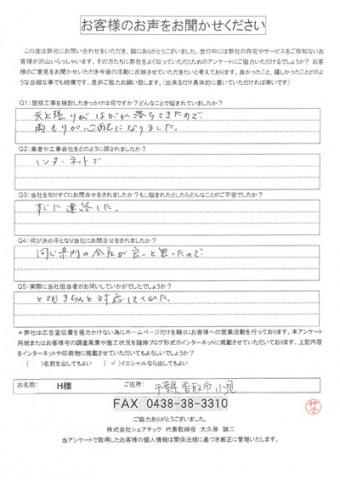 お客様のお声をお聞かせください
この度は弊社にお問い合わせをいただき、誠にありがとうございました。世の中には弊社の存在やサービスをご存知ないお
客様が沢山いらっしゃいます。その方たちに弊社をよく知っていただくためのアンケートにご協力いただけるでしょうか？お客
様のご意見をお聞かせいただき今後の活動に反映させていただきたいと考えております。良かったこと、嬉しかったことどのよ
うな些細な事でも結構です。是非ご協力お願い致します。（出来るだけ具体的に書いていただければ幸いです）
Q1：屋根工事を検討したきっかけは何ですか？どんなことで悩まれていましたか？
天上張りがはがれ落ちてきたので
雨もりが心配になりました。
Q2：業者や工事会社をどのように探されましたか？
インターネットで
Q3：当社を知りすぐにお問合せをされましたか？もし悩まれたとしたらどんなことがご不安でしたか？
すぐに連絡した。
Q4：何が決め手となり当社にお問合せをされましたか？
同じ県内の会社が良いと思ったので
Q5：実際に当社担当者がお伺いしていかがでしたでしょうか？
とてもきちんと対応してくれた。
＊弊社は広告宣伝費を極力かけない為にホームページだけを頼りにお客様への営業活動を行っております。本アンケート
用紙またはお客様宅の調査風景や施工状況を随時ブログ形式でインターネットに掲載させていただいております。上記内容
をインターネットや印刷物に掲載させていただいてもよろしいでしょうか？
（　）名前を出してもよい　（✓）イニシャルなら出してもよい
お名前： H様 ご住所： 千葉県香取市小見
FAX 0438-38-3310
ご協力ありがとうございました。
株式会社シェアテック 代表取締役 大久保 誠二
当アンケートで取得したお客様の個人情報は関係法規に基づき厳正に管理いたします。